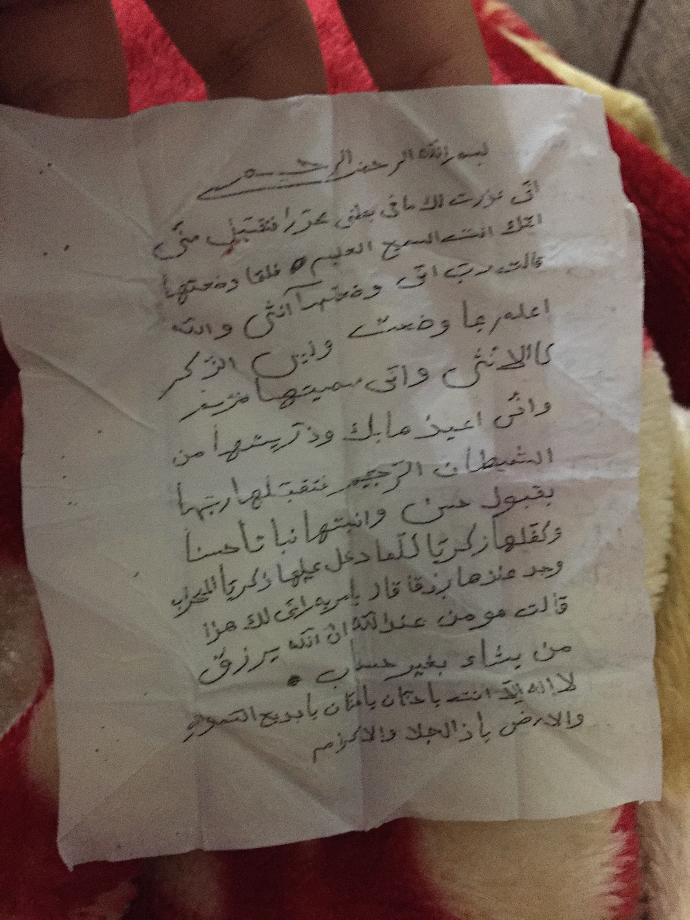 بسم الله الرحمن الرحيم
انى نذرت لك ما فى بطنى محررا فتقبل منى
انك انت السميع العليم فلما وضعتها
قالت رب انى وضعتها آنثى والله
اعلم بما وضعت وليس الذكر
كاالانثى وانى سميتها مريم
وانى اعيذ ها بك وذريتها من
الشيطان الرجيم فتقبلها ربها
بقبول حسن وانبتها نباتا حسنا
وكفلها زكريا كلما دخل عليها زكريا المحراب
وجد عندها رزقا قال يا مريم انى لك هذا
قالت هو من عند الله ان الله يرزق
من يشاء بغير حساب
لااله الا انت يا حنان يا منان يا بديع السموات
والارض يا ذالجلا والاكرام